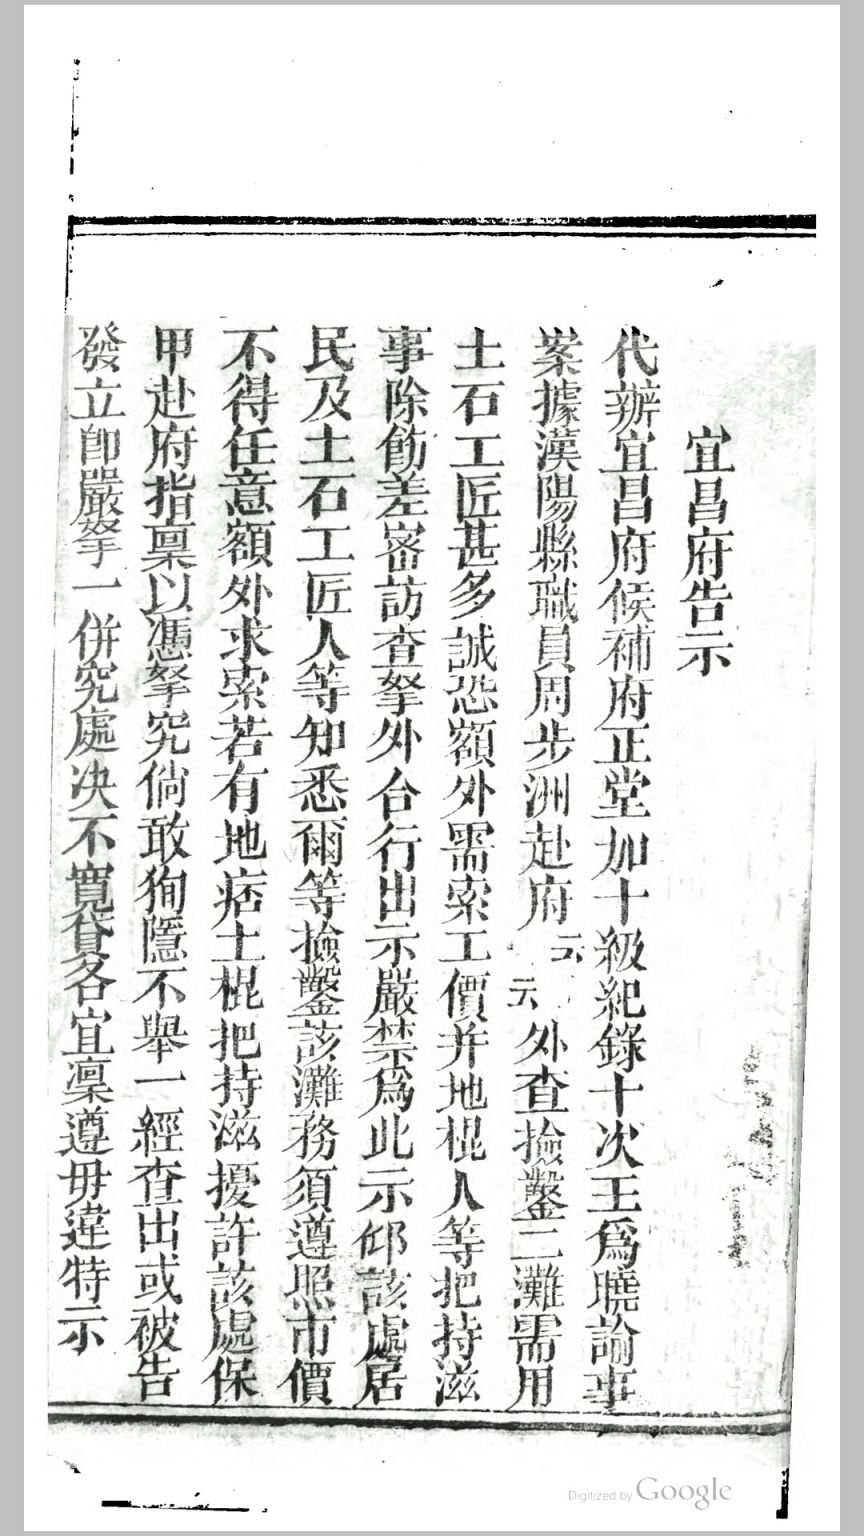 宜昌府告示
代辦宜昌府候補府正堂加十級紀錄十次王爲曉諭事
案據漢陽縣職員周步洲赴府云云外查撿鑿二灘需用
土石工匠甚多誠恐額外需索工價并地棍人等把持滋
事除飭差密訪查拏外合行出示嚴禁爲此示仰該處居
民及土石工匠人等知悉爾等撿鑿該灘務須遵照市價
不得任意額外求索若有地痞土棍把持滋擾許該處保
甲赴府指稟以憑拏究倘敢狥隱不舉一經查出或被告
發立卽嚴拏一併究處决不寬貸各宜凜遵毋違特示
Digitized by Google